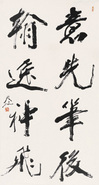 意先筆後
翰逸神飛